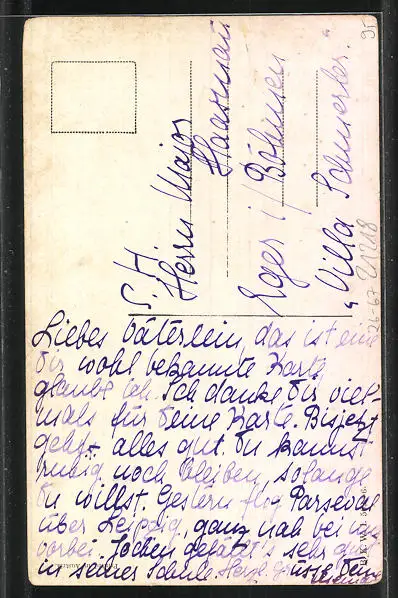 S. H.
Herrn Major
Haarmann
Eger i/ Böhmen
"Villa
Liebes Väterlein, das ist eine
Dir wohl bekannte Karte
glaube ich. Ich danke Dir viel-
mals für Deine Karte. Bis jetzt
geht alles gut. Du kannst
ruhig noch bleiben, solange
Du willst. Gestern flog Parseval
über Leipzig, ganz nah bei uns
vorbei. Jochen gefällt's sehr gut
in seiner Schule. Herzl. Grüsse Dein
95